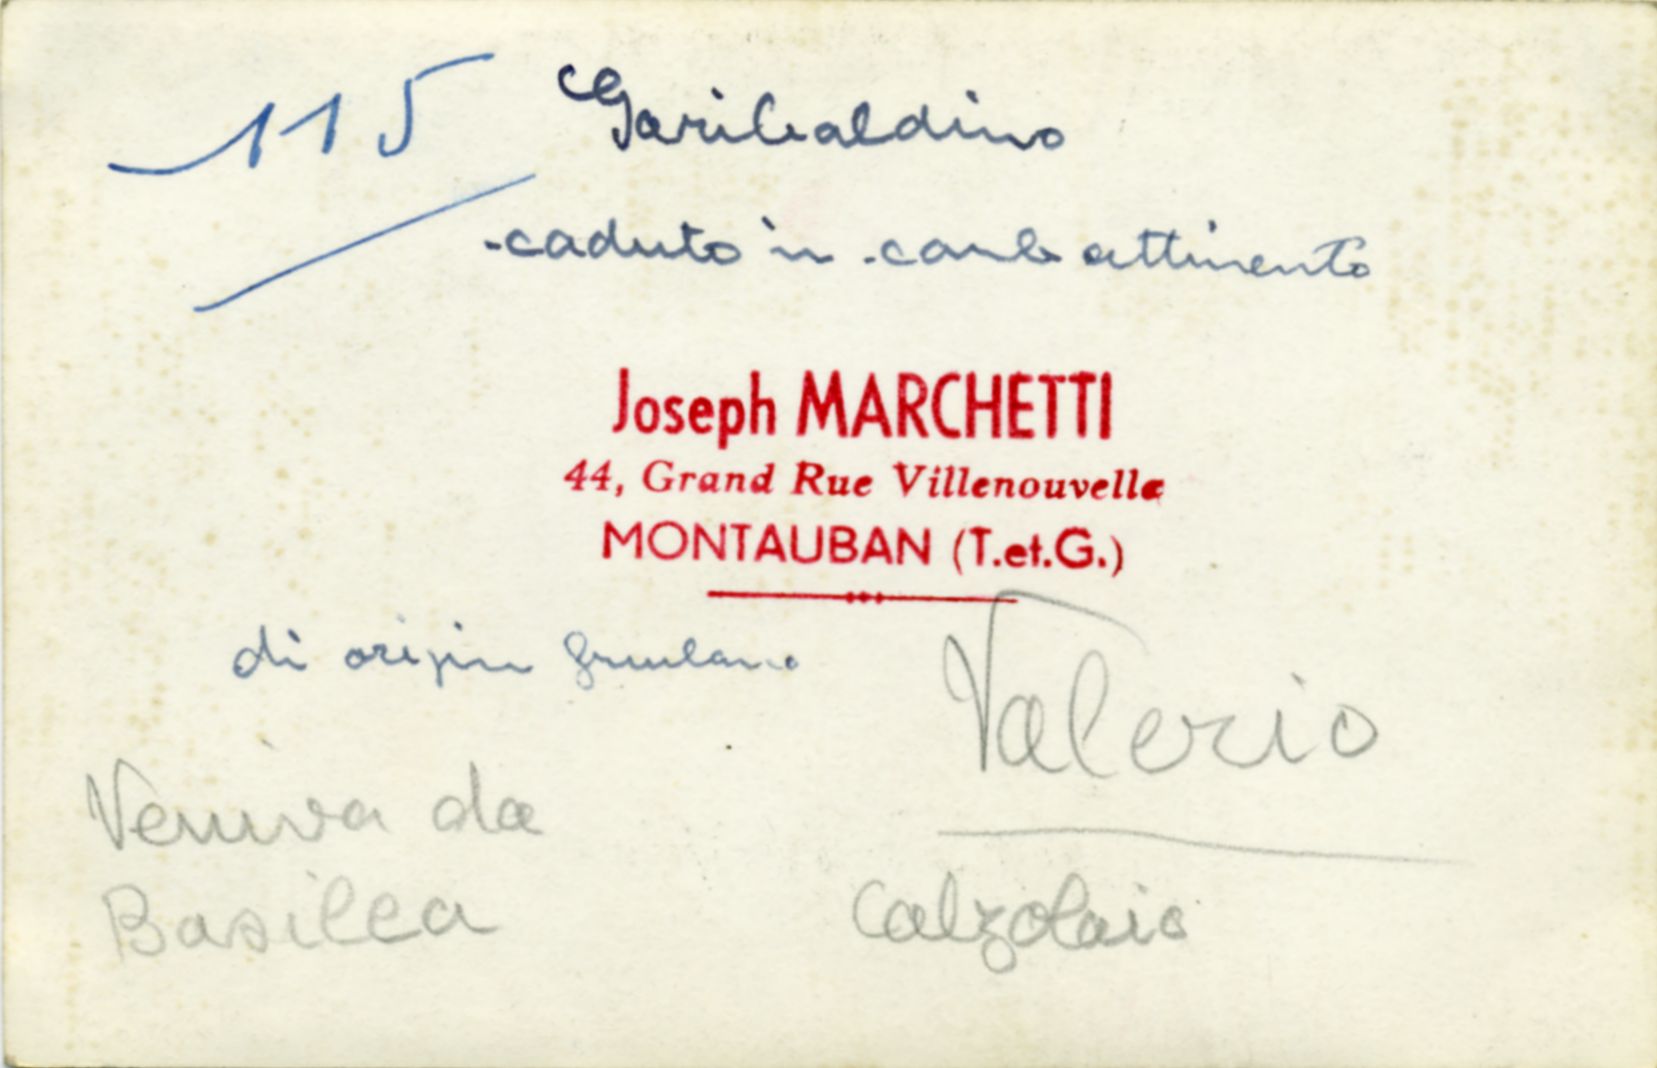 115 Garibaldino
caduto in combattimento
Joseph MARCHETTI
44, Grand Rue Villenouvelle
MONTAUBAN (T.et.G.)
di origin friulano
Valerio
Veniva da
Basilea
Calzolaio